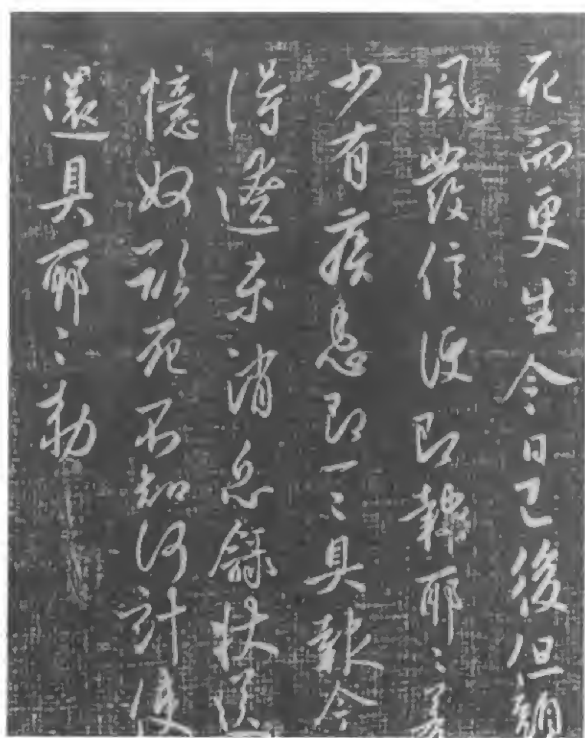 死而更生今日已後但頭
風發信便即報耶〻若
少有疾患即一〻具報今
得遼東消息錄狀送
憶奴欲死不知何計使
還具耶〻勅